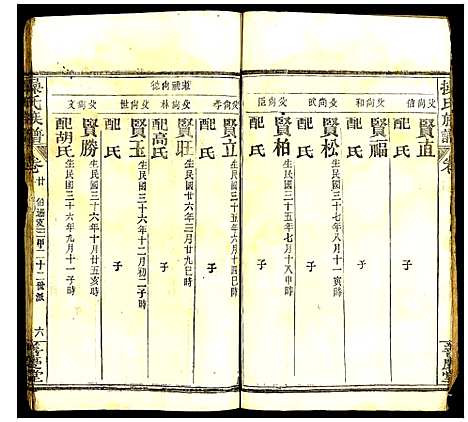 父尚信
賢直
配 氏
子
父尚和
賢福
配 氏
子
父尚武
賢松
生民國三十七年八月十一寅時
配 氏
子
父尚臣
賢柏
生民國三十五年七月十八申時
配 氏
子
父尚孝
賢立
生民國三十六年六月十四巳時
配 氏
子
父尚林
賢旺
生民國廿六年三月廿九巳時
配高氏
父尚世
賢玉
生民國三十六年十二月初二子時
配 氏
子
父尚文
賢勝
生民國三十六年十月廿五亥時
配胡氏
生民國三十六年九月十一時
氏族譜
卷廿
六
善慶堂